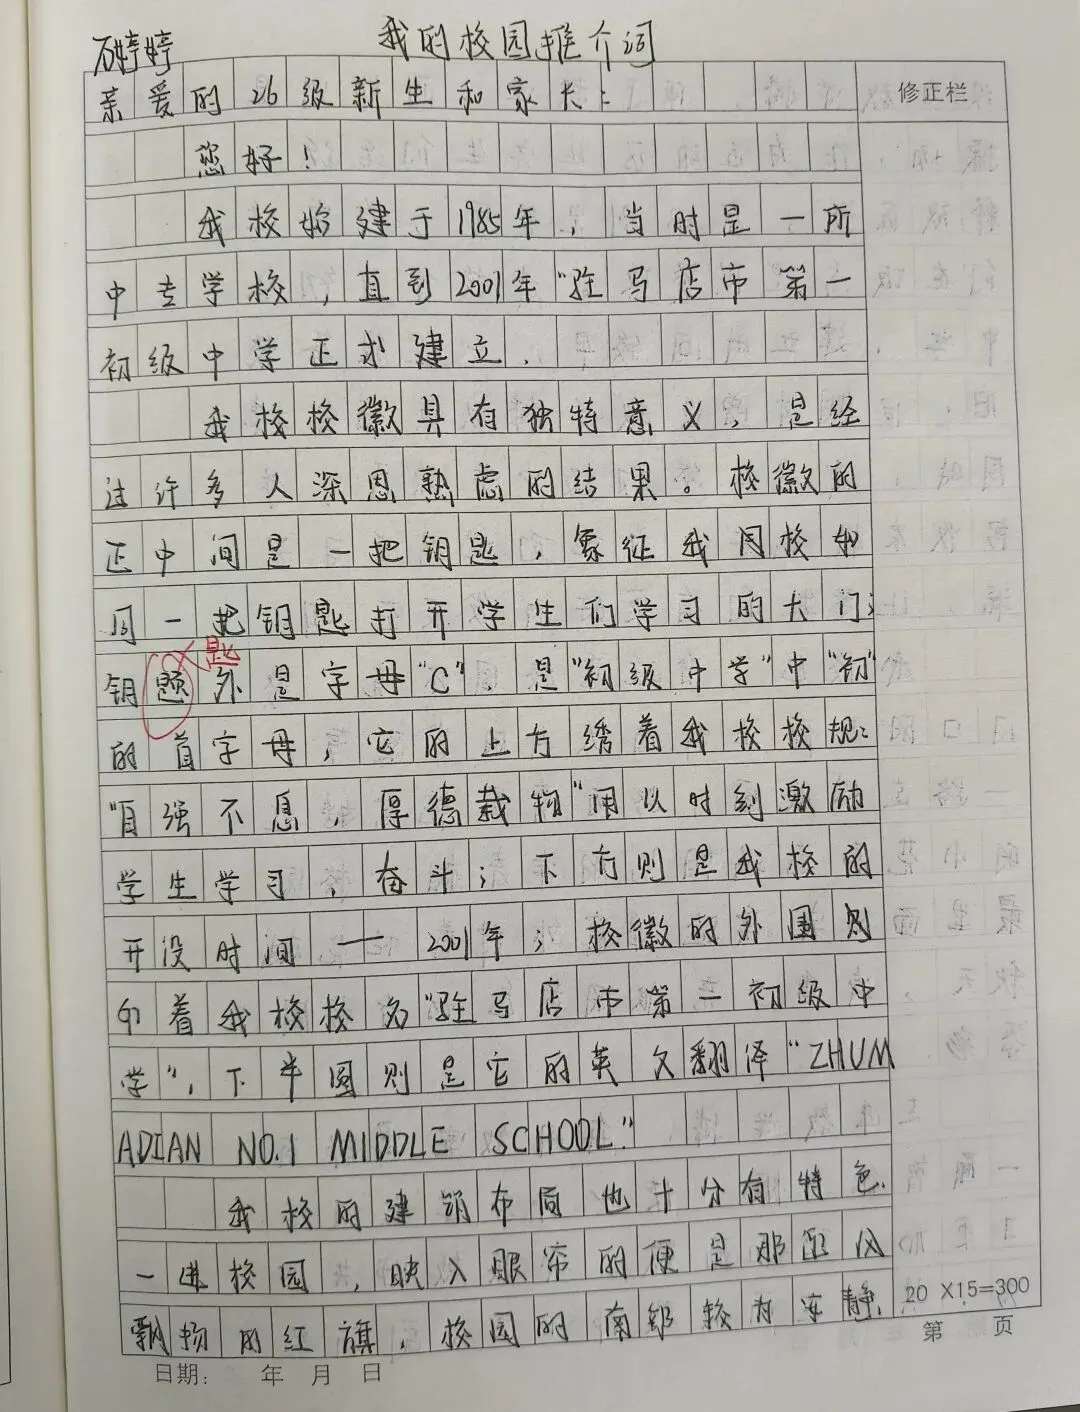 我的校园推介词
石婷婷
亲爱的26级新生和家长:
修正栏
您好!
我校始建于1985年,当时是一所
中专学校,直到2001年"驻马店市第一
初级中学正式建立.
我校校徽具有独特意义,是经
过许多人深思熟虑的结果。校徽的
正中间是一把钥匙,象征我同校如
同一把钥匙打开学生们学习的大门;
匙
钥题外是字母"C".是"初级中学"中"初"
的首字母,它的上方绣着我校校规:
"自强不息.厚德载物"用以时刻激励
学生学习,奋斗;下方则是我校的
开设时间——2001年;校徽的外围则
印着我校校名"驻马店市第一初级中
学",下半圆则是它的英文翻译"ZHUM
ADIAN NO.1 MIDDLE SCHOOL"
我校的建筑布局也十分有特色.
一进校园,映入眼帘的便是那迎风
飘扬的红旗.校园的南部较为安静.
20 X15=300
第 页
日期: 年 月 日